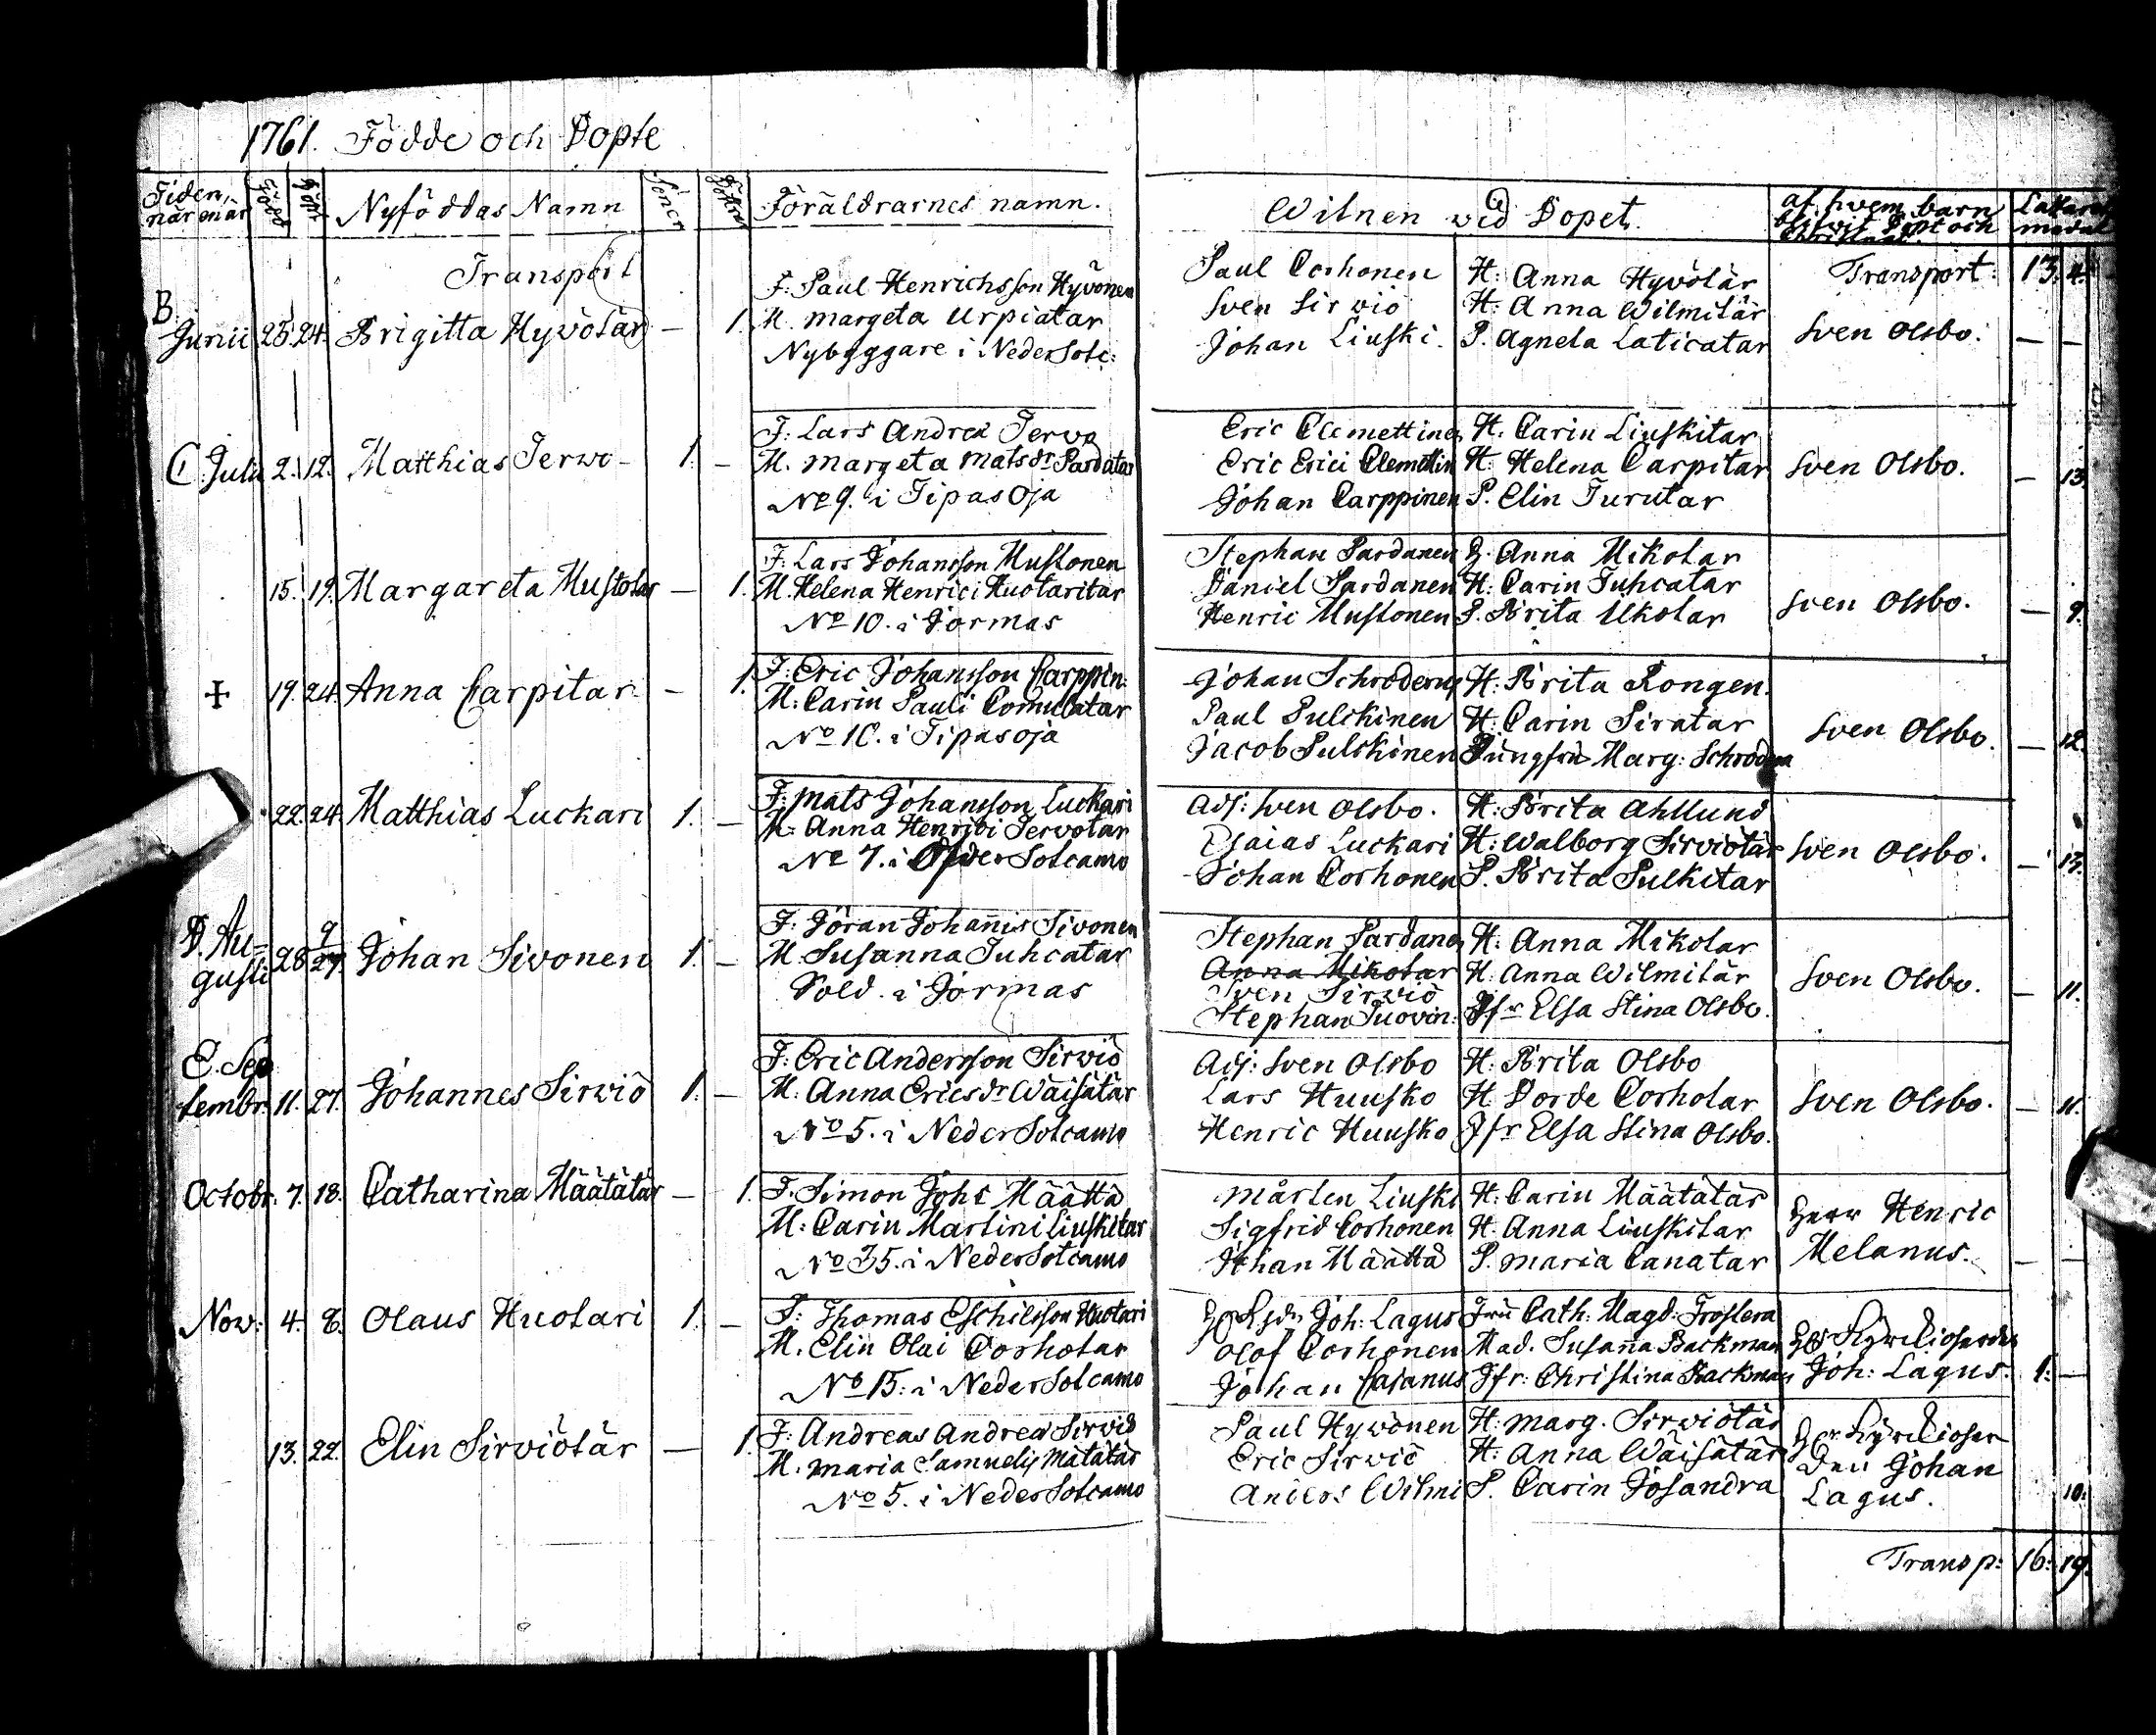 1761. Födde och Döpte
Tiden, när en är
Född
Döpt
Nyföddas Namn
Söner
Döttrar
Föräldrarnes namn.
Witnen wid Dopet.
af hwem barn blifwit Döpt och Christnat.
Transport
Transport: 13. 4.
B. Junii 23. 24. Brigitta Hywötär — 1.
F: Paul Henrichsson Hyvönen
M. Margeta Urpiatar
Nybyggare i Neder Sotc:
Paul Corhonen H: Anna Hyvötär
Sven Sirwiö H: Anna Wilmitär
Johan Liuski. P. Agneta Laticatar
Sven Olsbo. — —
C. Julii 2. 12. Matthias Terwo 1. —
F: Lars Andreæ Terwo
M. Margeta Matsdr Pardatar
No 9. i Tipasoja
Eric Clemettinen H. Carin Liuskitar
Eric Erici Clemettin H: Helena Carpitar
Johan Carppinen P. Elin Turutar
Sven Olsbo. — 13.
15. 19. Margareta Mustotar — 1.
F: Lars Johansson Mustonen
M. Helena Henrici Huotaritar
No 10. i Jormas
Stephan Pardanen H. Anna Mikotar
Daniel Pardanen H: Carin Juhcatar
Henric Mustonen P. Brita Ukotar
Sven Olsbo. — 9.
+ 19. 24. Anna Carpitar — 1.
F: Eric Johansson Carppin:
M: Carin Pauli Comulatar
No 10. i Tipasoja
Johan Schroderus H: Brita Rongen.
Paul Pulckinen H: Carin Piratar
Jacob Pulckinen Jungfru Marg: Schrodera
Sven Olsbo. — 12.
22. 24. Matthias Luckari 1. —
F: Mats Johansson Luckari
M: Anna Henrici Tervotar
No 7. i Öfver Sotcamo
Adj: Sven Olsbo. H: Brita Ahllund
Esaias Luckari H: Walborg Sirviötär
Johan Corhonen P. Brita Pulkitar
Sven Olsbo. — 13.
D. Au-
gusti 28 9/27. Johan Sivonen 1. —
F: Jöran Johannis Sivonen
M. Susanna Juhcatar
Sold. i Jormas
Stephan Pardanen H: Anna Mikotar
Anna Mikotar H: Anna Wilmitär
Sven Sirwiö
Stephan Tuovin: Jfr Elsa Stina Olsbo.
Sven Olsbo. — 11.
E. Sep
tembr. 11. 27. Johannes Sirwiö 1. —
F: Eric Andersson Sirviö
M: Anna Ericsdr Wäisätär
No 5. i Neder Sotcamo
Adj: Sven Olsbo H: Brita Olsbo
Lars Huusko H: Dorde Corhotar
Henric Huusko Jfr Elsa Stina Olsbo.
Sven Olsbo. — 11.
Octobr. 7. 18. Catharina Määtätär — 1.
F. Simon Joh: Määttä
M: Carin Martini Liuskitar
No 35. i Neder Sotcamo
Mårten Liuski H: Carin Määtätär
Sigfrid Corhonen H. Anna Liuskitar
Johan Määttä P. Maria Canatar
Herr Henric
Melanus. — —
Nov: 4. 8. Olaus Huotari 1. —
F: Thomas Eschilsson Huotari
M. Elin Olai Corhotar
No 15. i Neder Sotcamo
Joh: Lagus Fru Cath: Magd: Frostera
Olof Corhonen Mad. Susanna Backman
Johan Cajanus Jfr: Christina Backman
Joh: Lagus. 1: —
13. 22. Elin Sirviötär — 1.
F: Andreas Andreæ Sirviö
M. Maria Samuelis Mätätär
No 5. i Neder Sotcamo
Paul Hywönen H: Marg. Sirwiötär
Eric Sirwiö H: Anna Wäisätär
Anders Wilmi P. Carin Josandra
Johan
Lagus. 10:
Transp: 16: 19.